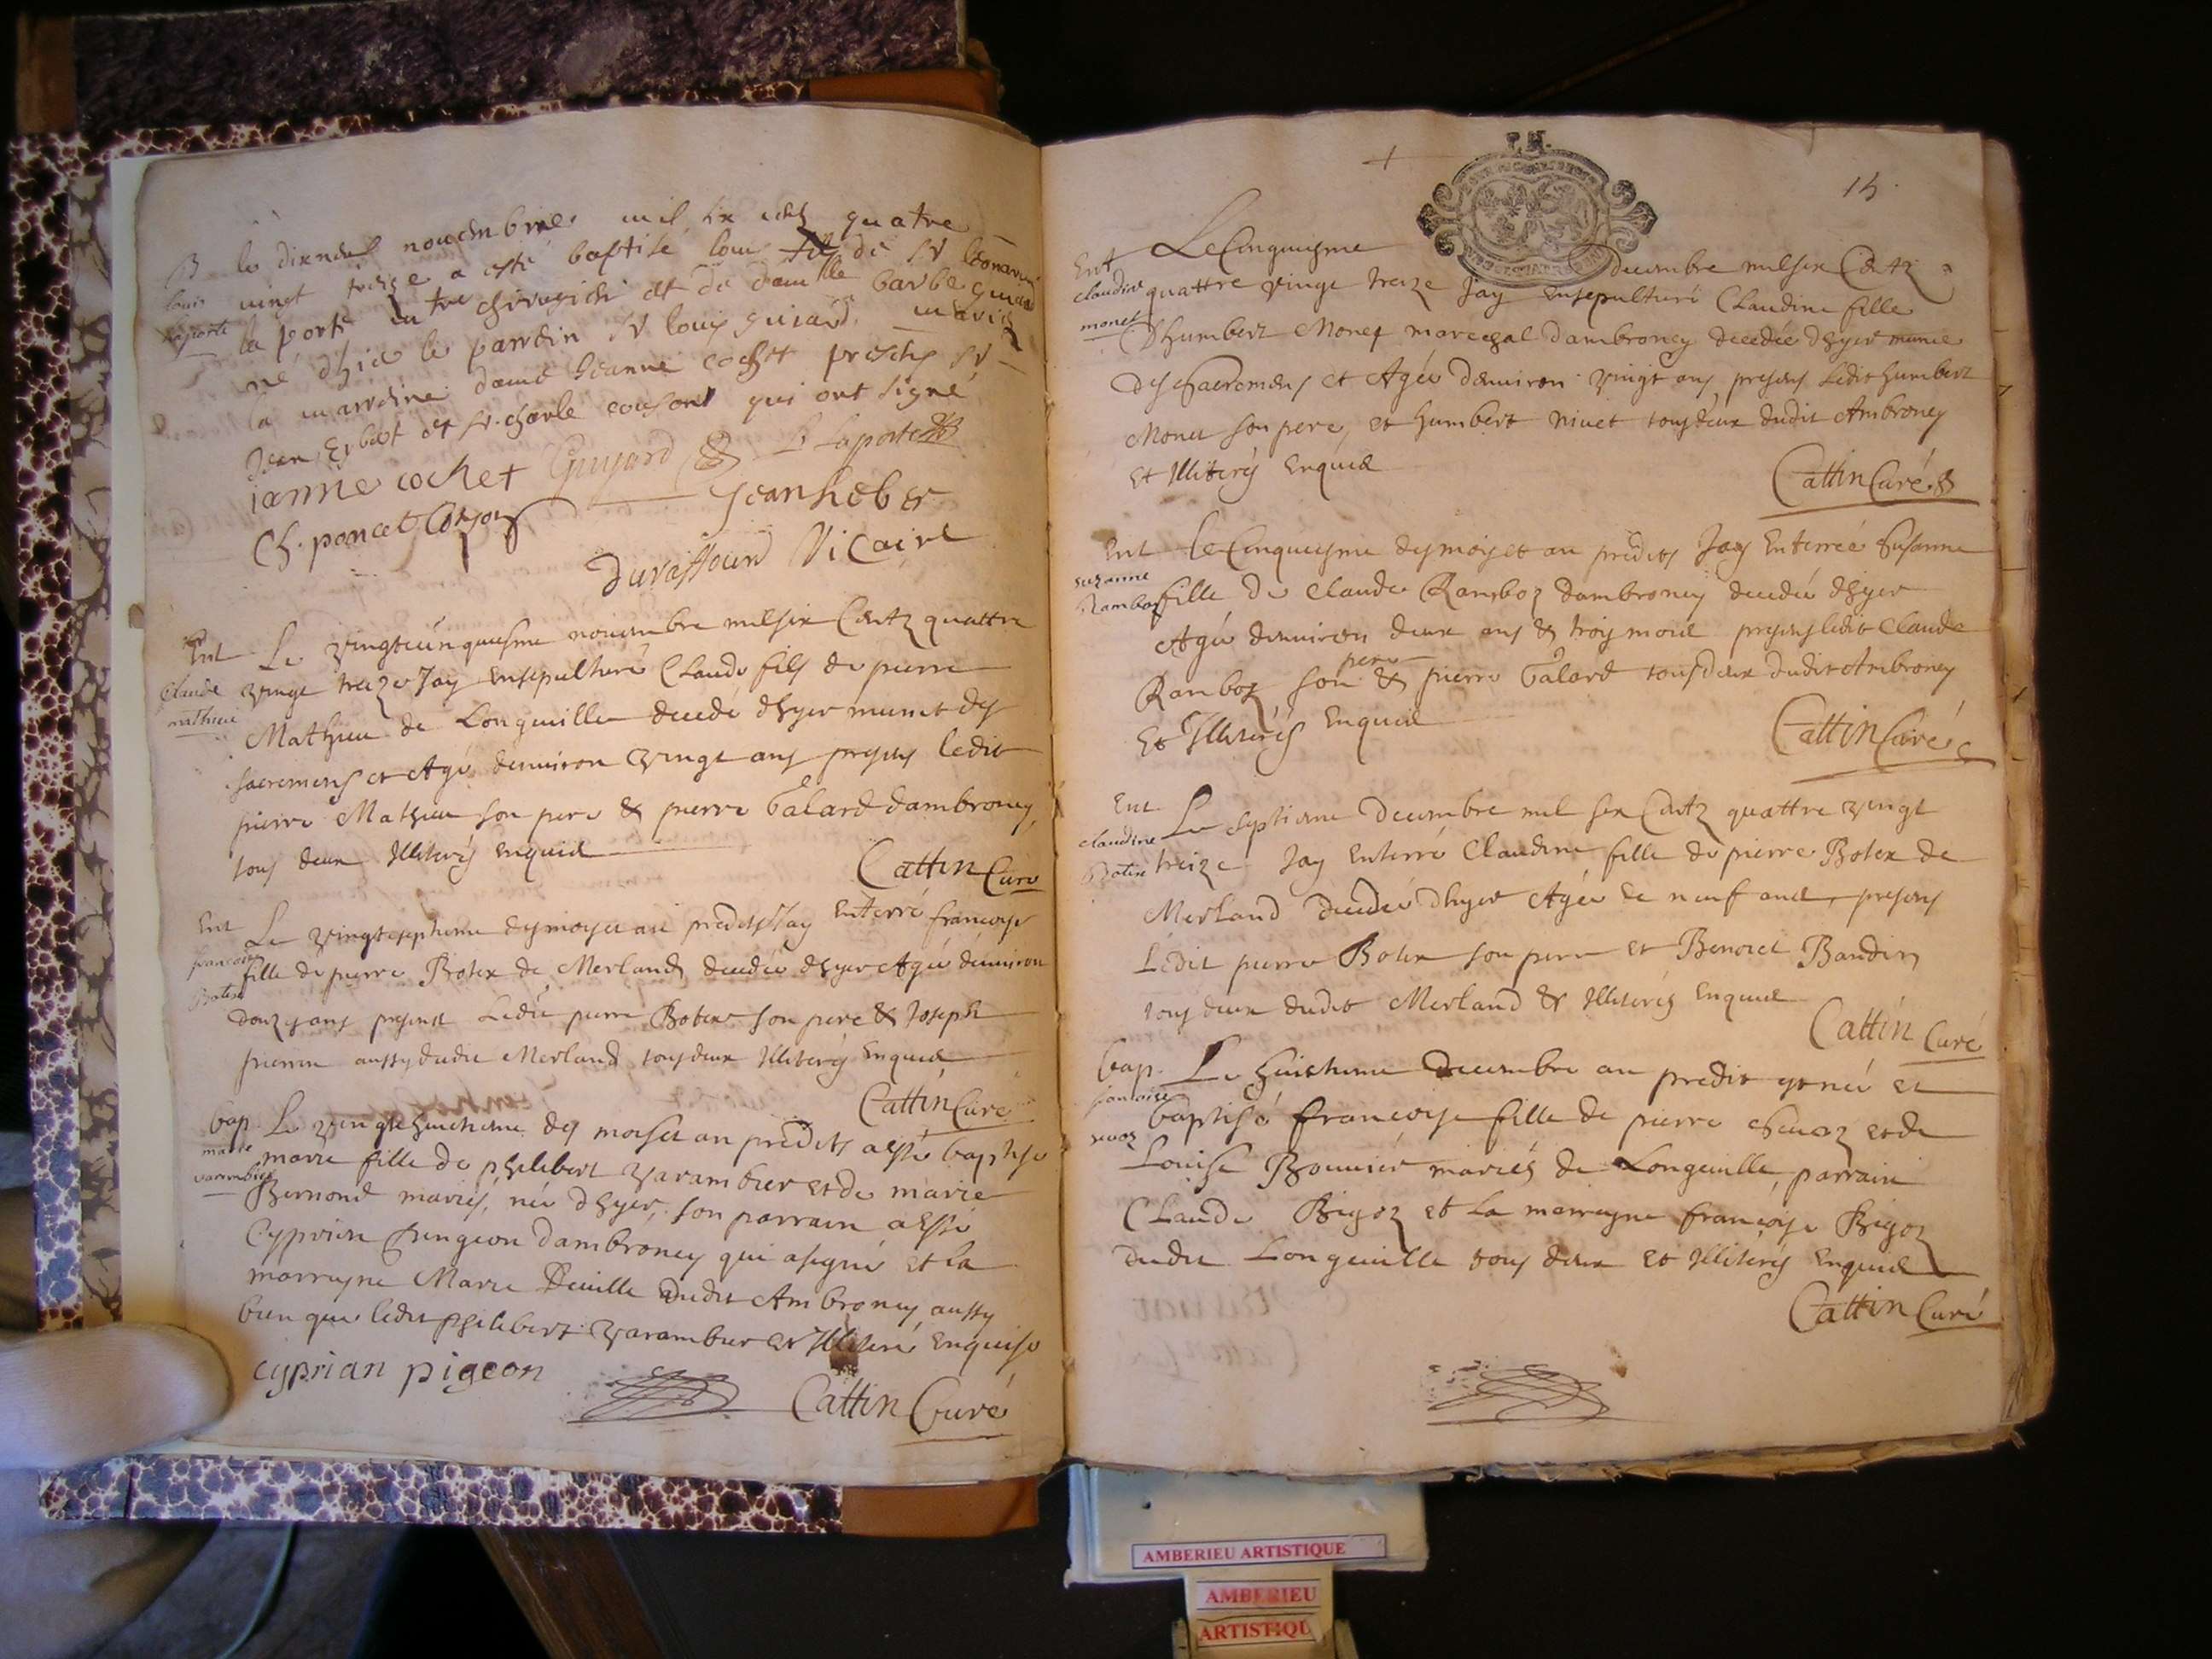 B le novembre mil six cents quatre
louis vingt treize a esté baptisé louis fils de sr leonard
laporte la porte mtre chirurgien et de damlle barbe guiard
né d'hier le parrein sr louis guiard
la marreine dame Jeanne cochet presens sr
Jean et sr charle qui ont signé
ianne cochet Guyard L Laporte
Ch. poncet Jean heber
Vicaire
Ent Le vingtcinquiesme novembre mil six Centz quattre
Claude vingt treize Jay ensepulturé Claude fils de pierre
mathieu Mathieu de Longeville decedé dhyer munit des
sacremens et Agé denviron vingt ans presens ledit
pierre Mathieu son pere & pierre Talard dambroney,
tous deux Illiterés enquis
Cattin Curé
Ent Le vingtseptieme des mois et an predits Jay enterré francoise
francoise fille de pierre Botex de Merland decedée dhyer Agée denviron
Botex douze ans presens Ledit pierre Botex son pere & Joseph
aussy dudit Merland tous deux Illiterés Enquis
Cattin Curé
bap. Le vingthuictieme des mois et an predits a esté baptisé
marie marie fille de philibert Varambier et de marie
varambier Bernond mariés, née dhyer, son parrain a esté
Cyprien pingeon dambroney qui a signé et la
marreyne Marie Deville dudit Ambroney aussy
bien que ledit philibert Varambier et Illiteré Enquise
cyprian pigeon
Cattin Curé
15
Ent Le Cinquiesme decembre mil six Centz
claudine quattre vingt treze Jay ensepulturé Claudine fille
monet Dhumbert Monet marechal dambroney decedée dhyer munie
des sacremens et Agée denviron vingt ans presens Ledit humbert
Monet son pere, et humbert nivet tous deux dudit Ambroney
et Illiterés Enquis
Cattin Curé
Ent le Cinquiesme des mois et an predits Jay Enterrée Susanne
suzanne fille de Claude Ramboz dambroney decedée dhyer
Ramboz Agée denviron deux ans & trois mois presens ledit Claude
Ramboz son pere & pierre Talard tous deux dudit Ambroney
Et Illiterés Enquis
Cattin Curé
Ent Le septieme Decembre mil six Centz quattre vingt
claudine treize Jay Enterré Claudine fille de pierre Botex de
Botex Merland decedée dhyer Agée de neuf ans, presens
Ledit pierre Botex son pere et Benoict Baudin
tous deux dudit Merland & Illiterés Enquis
Cattin Curé
bap. Le huictieme Decembre an predit est née et
francoise baptisé francoise fille de pierre et de
Louise Bouvier mariés de Longeville, parrain
Claude Bigoz et la marreyne francoise Bigoz
dudit Longeville tous deux et Illiterés Enquis
Cattin Curé
AMBERIEU ARTISTIQUE
AMBERIEU
ARTISTIQU